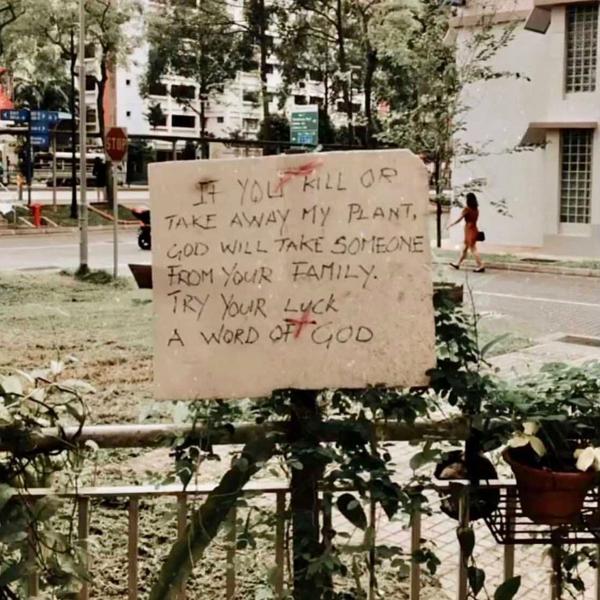 STOP
IF YOU KILL OR
TAKE AWAY MY PLANT,
GOD WILL TAKE SOMEONE
FROM YOUR FAMILY.
TRY YOUR LUCK
A WORD OF GOD